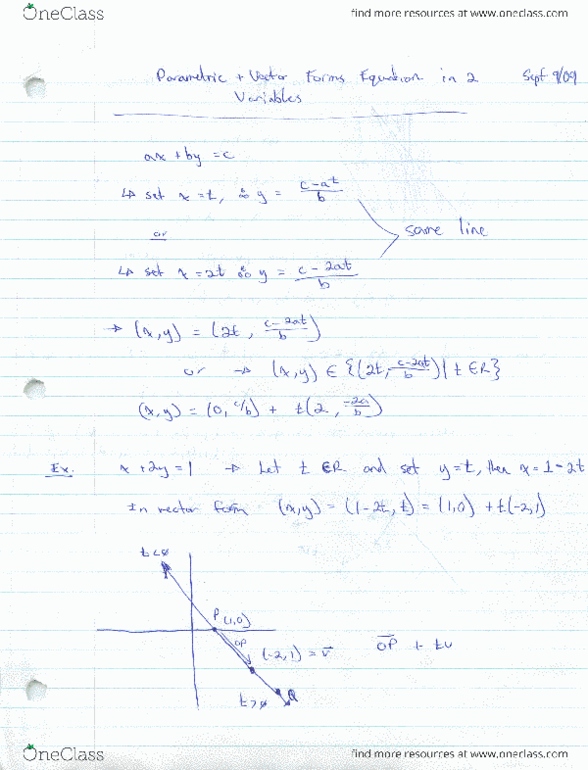 OneClass
find more resources at www.oneclass.com
Parametric + Vector Forms Equation in 2 Sept 9/09
Variables
ax + by = c
↳ set x = t, ∴ y = c-at/b
or
same line
↳ set x = 2t ∴ y = c - 2at/b
→ (x,y) = (2t, c-2at/b)
or → (x,y) ∈ {(2t, c-2at/b) | t ∈ R}
(x,y) = (0, c/b) + t(2, -2a/b)
Ex. x + 2y = 1 → Let t ∈ R and set y = t, then x = 1-2t
In vector form (x,y) = (1-2t, t) = (1,0) + t(-2,1)
t<0
P (1,0)
OP
(-2,1) = v⃗
OP + tv
t>0 Q
OneClass
find more resources at www.oneclass.com